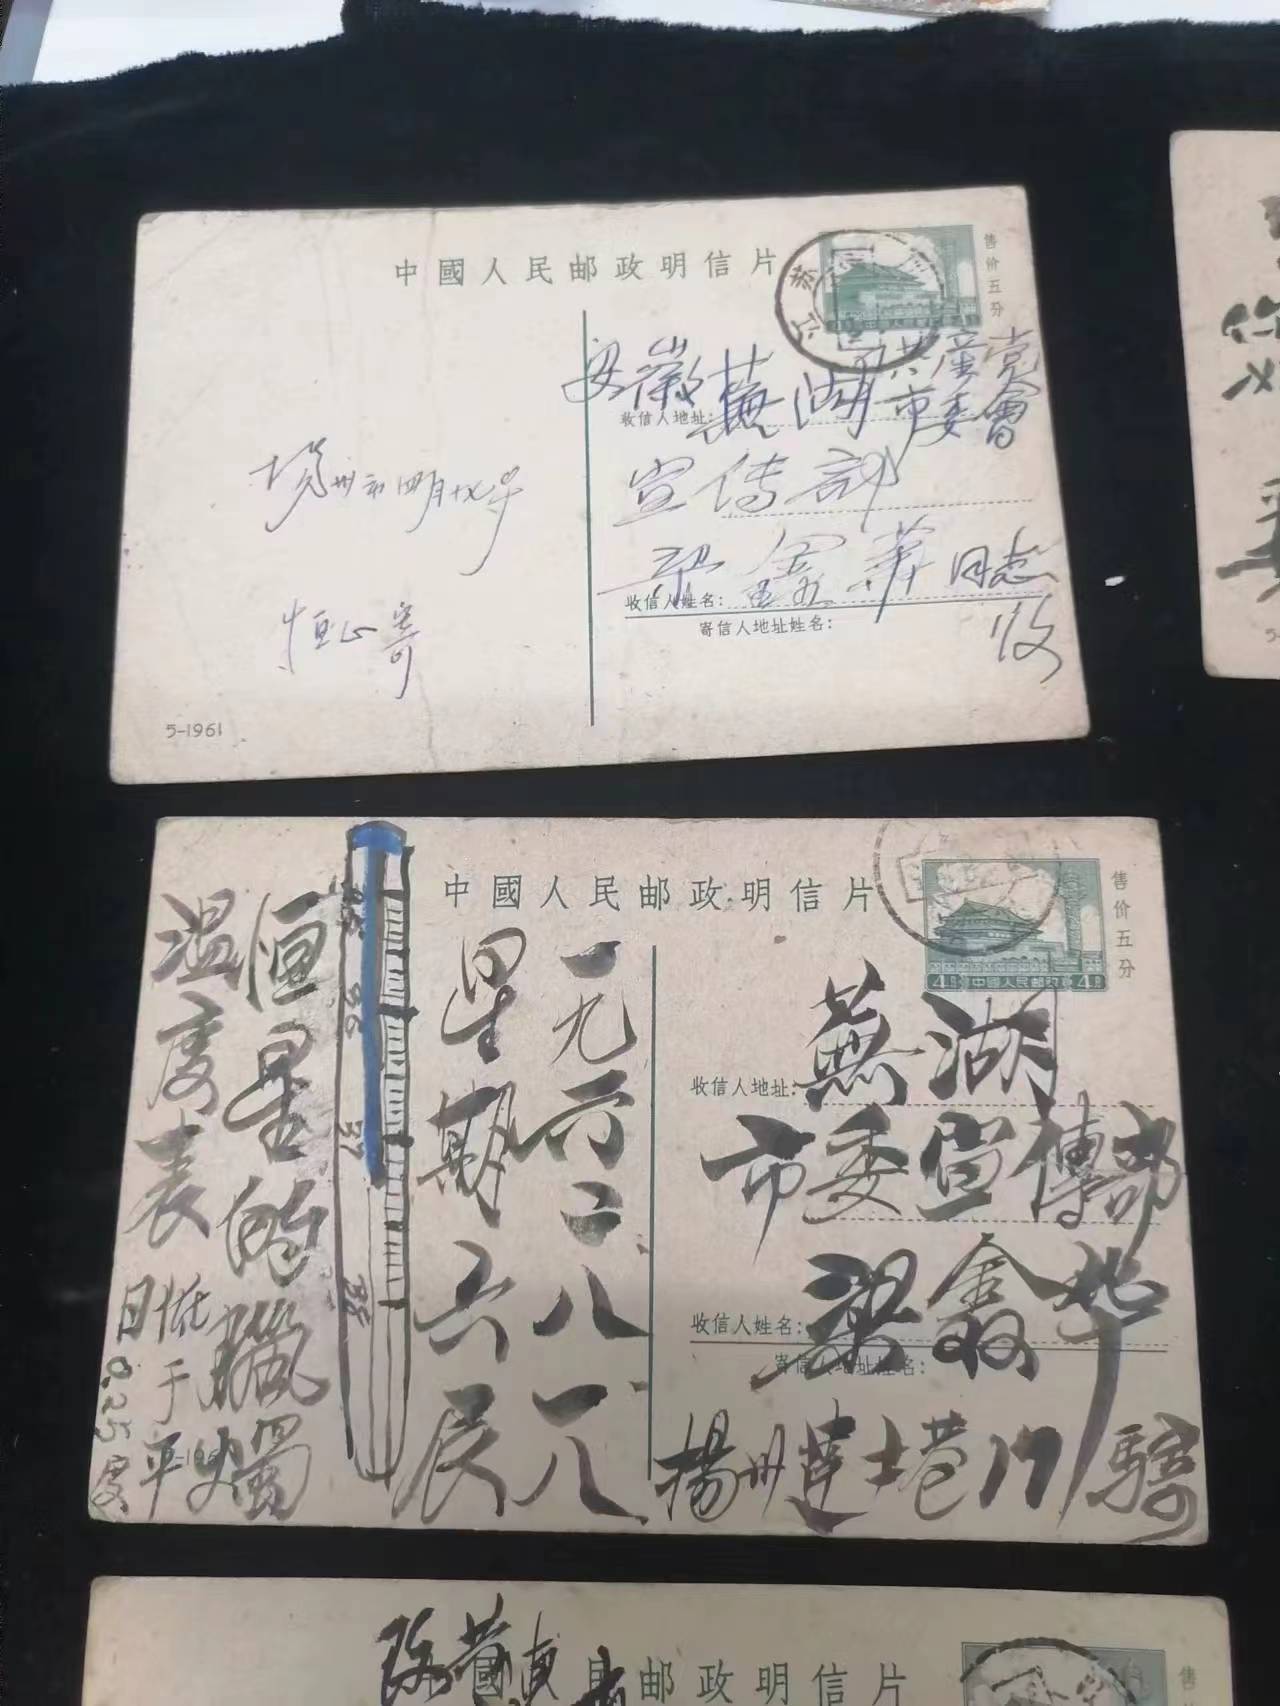 中國人民邮政明信片
江苏
售价五分
安徽蕪湖共産党
市委會
收信人地址:
宣传部
梁鑫華同志
收
收信人姓名:
寄信人地址姓名:
揚州市四月
恒心寄
5-1961
中國人民邮政明信片
售价五分
4分 中國人民邮政 4分
收信人地址:
蕪湖
市委宣傳部
收信人姓名:
梁鑫华
寄信人地址姓名:
揚州達士巷17 騎
一九六二八一八
星期六辰
36
37
38
恒星的臘燭
温度表
低于平
日0.25度
國
邮政明信片
售